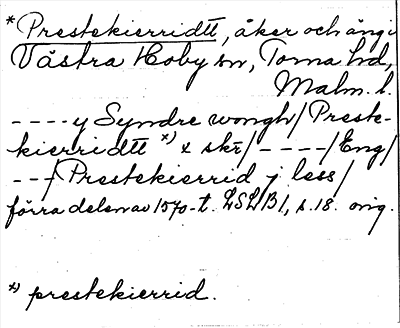 *Prestekierridtt, åker och äng i
Västra Hoby sn, Torna hd,
Malm. l.
----y Syndre wongh/Preste-
kierridtt *) x skr/----/Eng/
--/Prestekierrid j less/
förra delen av 1570-t. LSLB1, s. 18. orig.
*) prestekierrid.